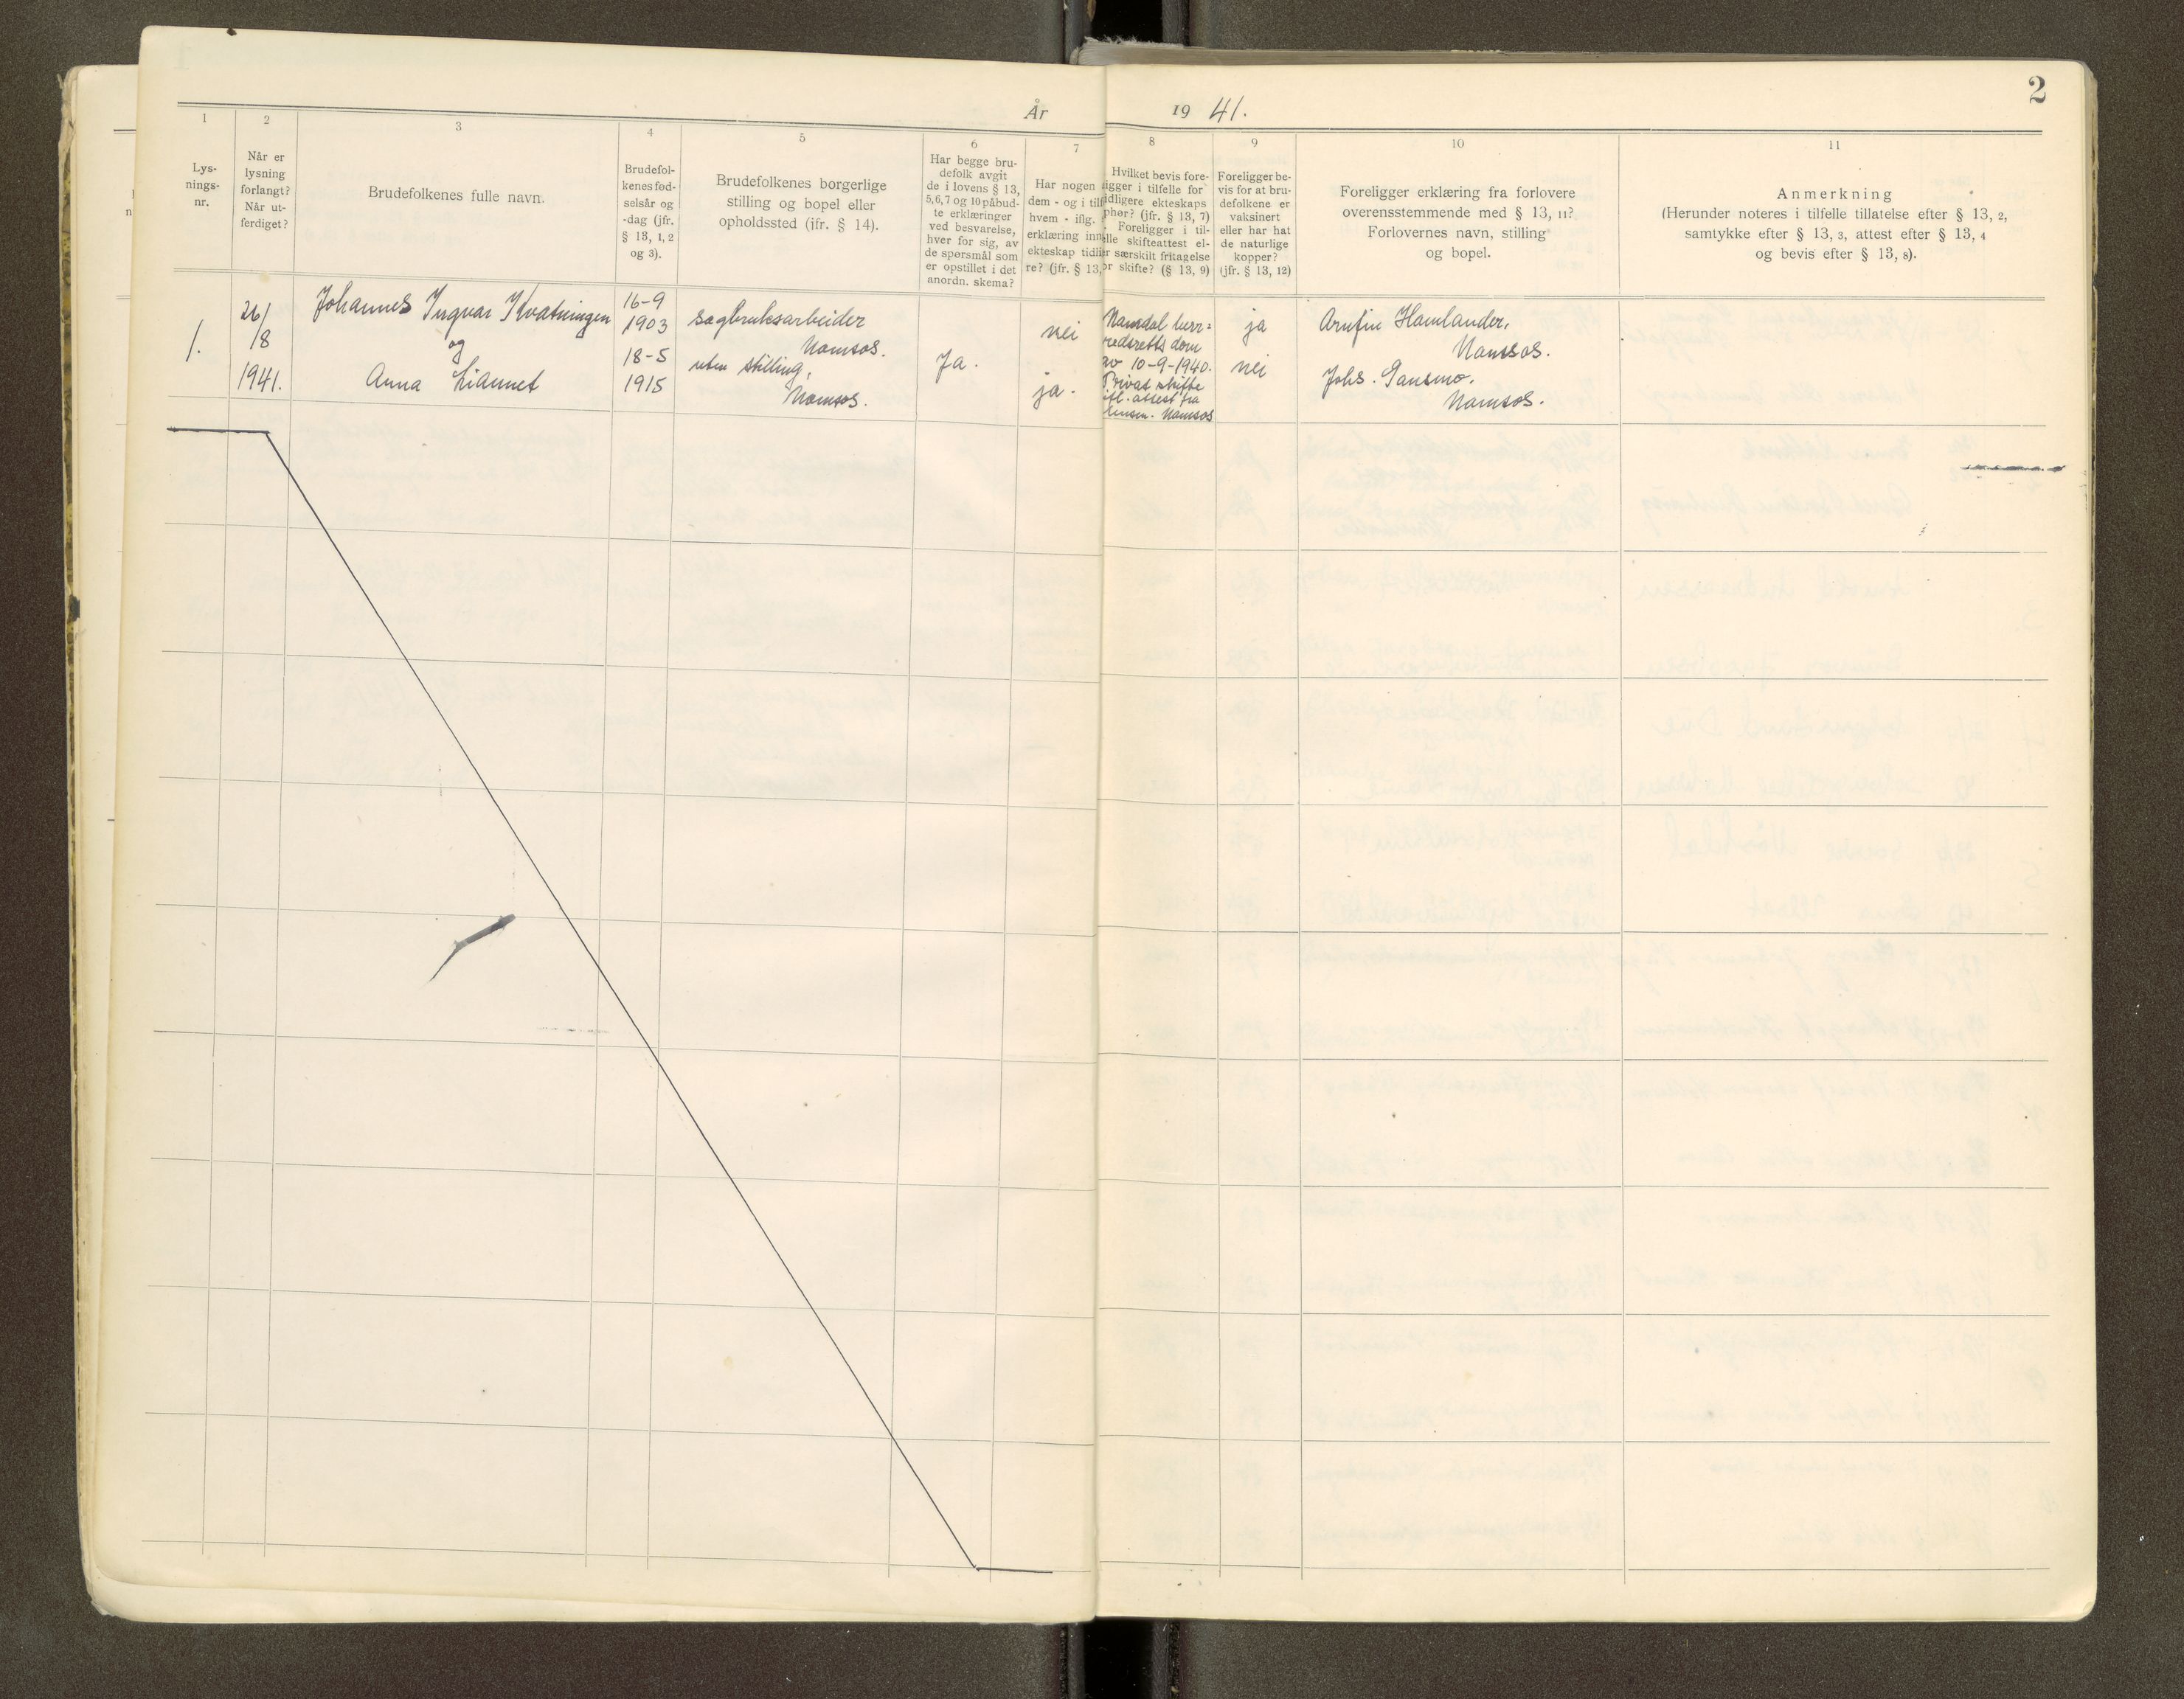 2
År 1941.
1
Lys-
nings-
nr.
2
Når er
lysning
forlangt?
Når ut-
ferdiget?
3
Brudefolkenes fulle navn.
4
Brudefol-
kenes fød-
selsår og
-dag (jfr.
§ 13, 1, 2
og 3).
5
Brudefolkenes borgerlige
stilling og bopel eller
opholdssted (jfr. § 14).
6
Har begge bru-
defolk avgit
de i lovens § 13,
5,6,7 og 10 påbud-
te erklæringer
ved besvarelse,
hver for sig, av
de spørsmål som
er opstillet i det
anordn. skema?
7
Har nogen
dem - og i tilf
hvem - ifig.
erklæring inn
ekteskap tidli
re? (jfr. § 13,
8
Hvilket bevis fore-
igger i tilfelle for
idligere ekteskaps
phør? (jfr. § 13, 7)
Foreligger i til-
elle skifteattest el-
er særskilt fritagelse
or skifte? (§ 13, 9)
9
Foreligger be-
vis for at bru-
defolkene er
vaksinert
eller har hat
de naturlige
kopper?
(jfr. § 13, 12)
10
Foreligger erklæring fra forlovere
overensstemmende med § 13, 11?
Forlovernes navn, stilling
og bopel.
11
Anmerkning
(Herunder noteres i tilfelle tillatelse efter § 13, 2,
samtykke efter § 13, 3, attest efter § 13, 4
og bevis efter § 13, 8).
1.
26/
18
1941.
Johannes Ingvar Kvatningen
og
Anna Liannet
16-9
1903
18-5
1915
sagbruksarbeider
Namsos.
uten stilling,
Namsos.
Ja.
nei
ja.
Namdal herr=
redsretts dom
av 10-9-1940.
Privat skifte
ifl. attest fra
Namsos
ja
nei
Arnfin Hamlander,
Namsos.
Johs. Gansmo.
Namsos.